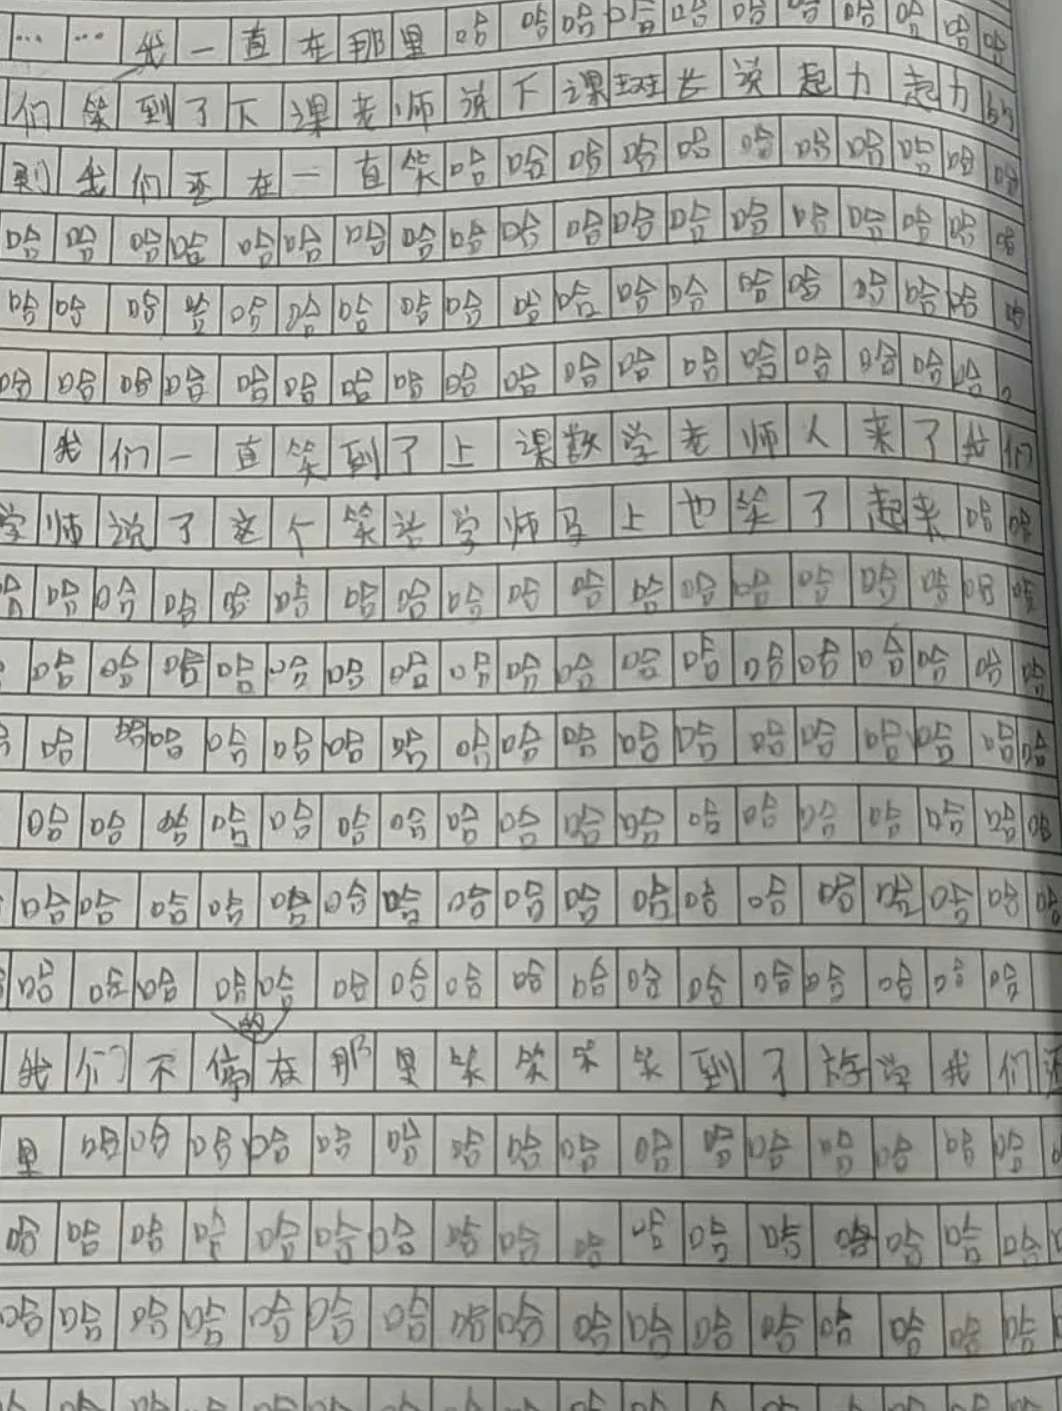 …… 我一直在那里哈哈哈哈哈哈哈哈哈哈哈
们笑到了下课老师说下课班长说起力起力
到我们还在一直笑哈哈哈哈哈哈哈哈哈哈哈
哈哈哈哈哈哈哈哈哈哈哈哈哈哈哈哈哈哈哈
哈哈哈哈哈哈哈哈哈哈哈哈哈哈哈哈哈哈哈
哈哈哈哈哈哈哈哈哈哈哈哈哈哈哈哈哈哈。
我们一直笑到了上课数学老师人来了我们
学师说了这个笑话学师马上也笑了起来哈哈
哈哈哈哈哈哈哈哈哈哈哈哈哈哈哈哈哈哈哈
哈哈哈哈哈哈哈哈哈哈哈哈哈哈哈哈哈哈
哈哈哈哈哈哈哈哈哈哈哈哈哈哈哈哈哈哈
哈哈哈哈哈哈哈哈哈哈哈哈哈哈哈哈哈哈
哈哈哈哈哈哈哈哈哈哈哈哈哈哈哈哈哈哈
哈哈哈哈哈哈哈哈哈哈哈哈哈哈哈哈哈
我们不停的在那里笑笑笑笑到了放学我们还
里哈哈哈哈哈哈哈哈哈哈哈哈哈哈哈哈
哈哈哈哈哈哈哈哈哈哈哈哈哈哈哈哈哈
哈哈哈哈哈哈哈哈哈哈哈哈哈哈哈哈哈